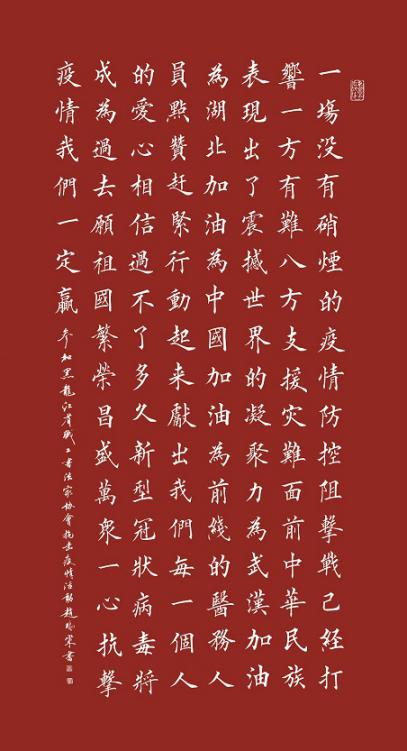 一塲没有硝煙的疫情防控阻擊戰己經打
響一方有難八方支援灾難面前中華民族
表現出了震撼世界的凝聚力為武漢加油
為湖北加油為中國加油為前綫的醫務人
員點贊赶緊行動起来獻出我們每一個人
的愛心相信過不了多久新型冠狀病毒將
成為過去願祖國繁榮昌盛萬衆一心抗擊
疫情我們一定贏 参加黑龍江省職工書法家協會抗击疫情活動趙書